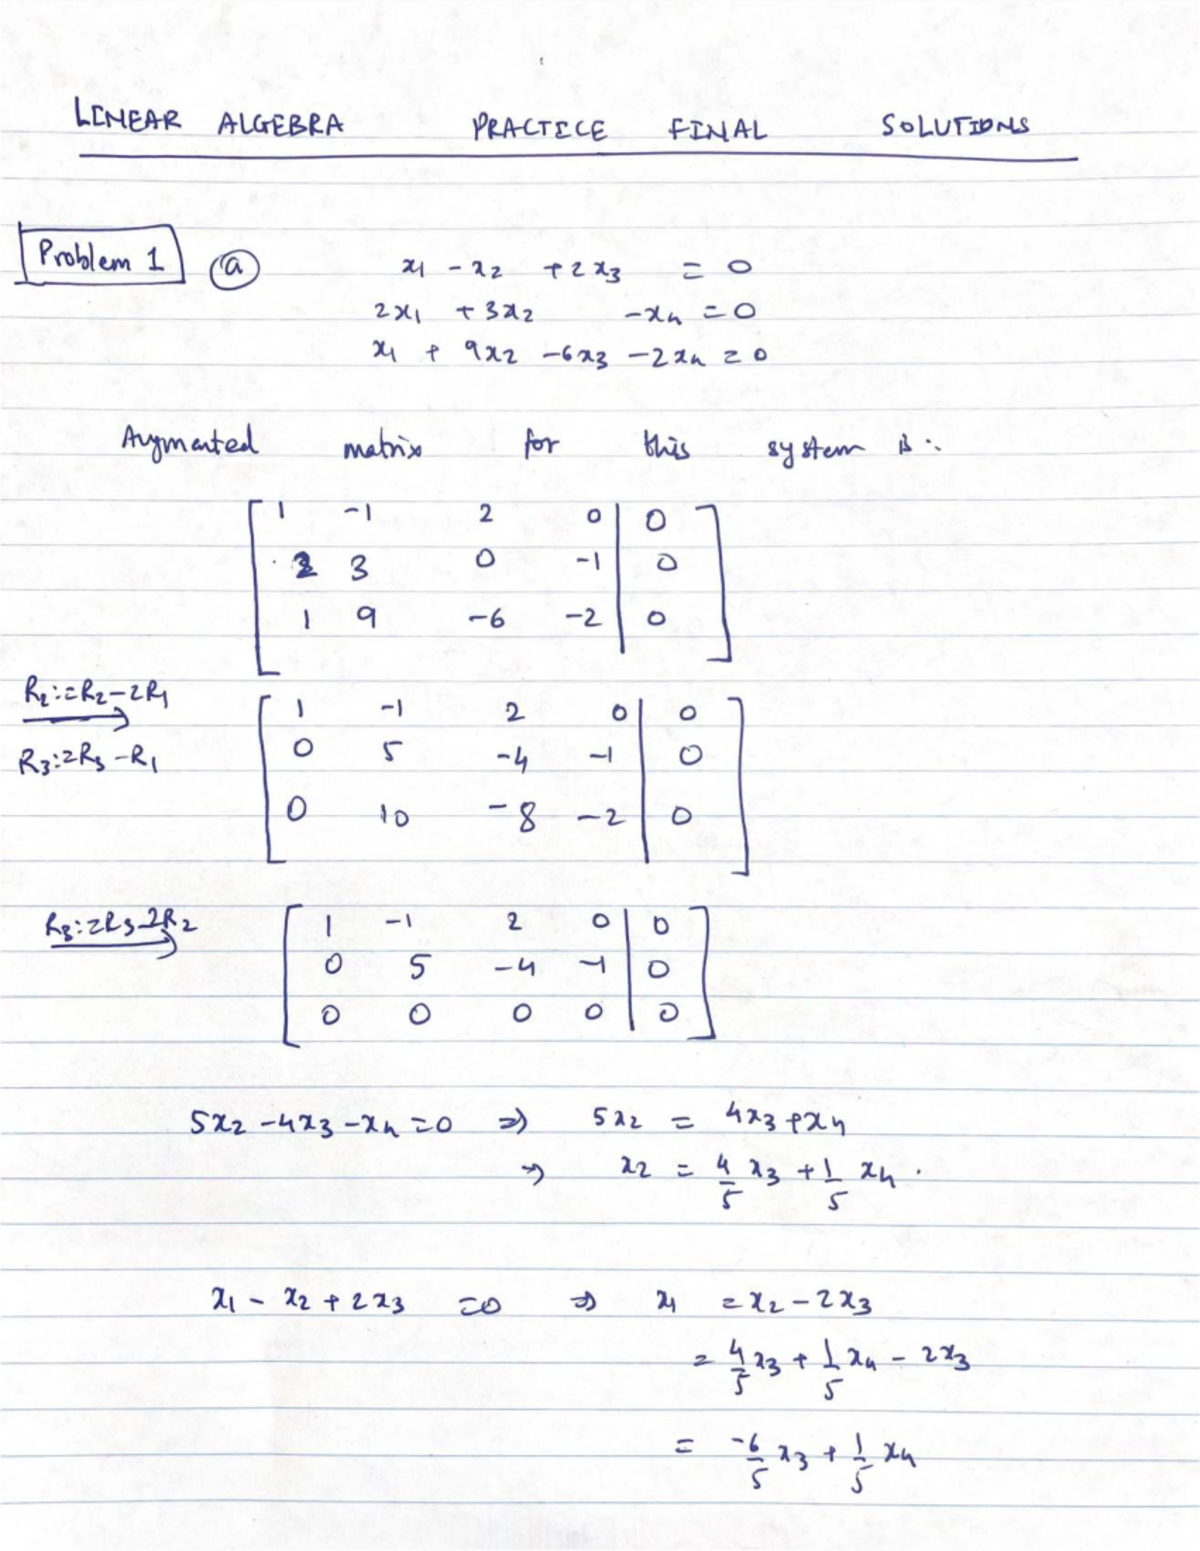 LINEAR ALGEBRA PRACTICE FINAL SOLUTIONS
Problem 1 (a) x₁ - x₂ + 2x₃ = 0
2x₁ + 3x₂ - x₄ = 0
x₁ + 9x₂ - 6x₃ - 2x₄ = 0
Augmented matrix for this system is:
1 -1 2 0 | 0
2 3 0 -1 | 0
1 9 -6 -2 | 0
R₂:=R₂-2R₁
R₃:=R₃-R₁
1 -1 2 0 | 0
0 5 -4 -1 | 0
0 10 -8 -2 | 0
R₃:=R₃-2R₂
1 -1 2 0 | 0
0 5 -4 -1 | 0
0 0 0 0 | 0
5x₂ - 4x₃ - x₄ = 0 ⇒ 5x₂ = 4x₃ + x₄
⇒ x₂ = 4/5 x₃ + 1/5 x₄.
x₁ - x₂ + 2x₃ = 0 ⇒ x₁ = x₂ - 2x₃
= 4/5 x₃ + 1/5 x₄ - 2x₃
= -6/5 x₃ + 1/5 x₄